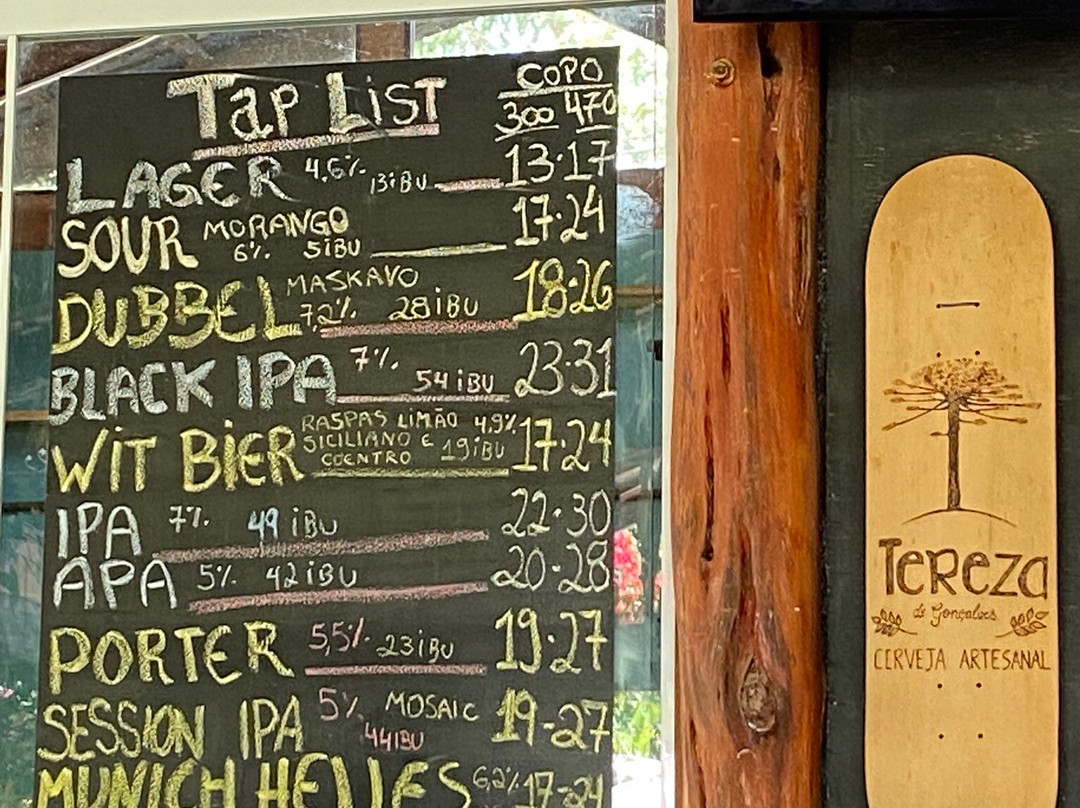 Tap List
COPO
300 470
LAGER 4,6% 13iBU 13·17
SOUR MORANGO 6% 5iBU 17·24
DUBBEL MASKAVO 7,2% 28iBU 18·26
BLACK IPA 7% 54iBU 23·31
WIT BIER RASPAS LIMÃO SICILIANO E COENTRO 4,9% 19iBU 17·24
IPA 7% 49 iBU 22·30
APA 5% 42iBU 20-28
PORTER 5,5% 23iBU 19·27
SESSION IPA 5% MOSAIC 44IBU 19-27
MUNICH HELLES 6,2% 17-24
Tereza
de Gonçalves
CERVEJA ARTESANAL